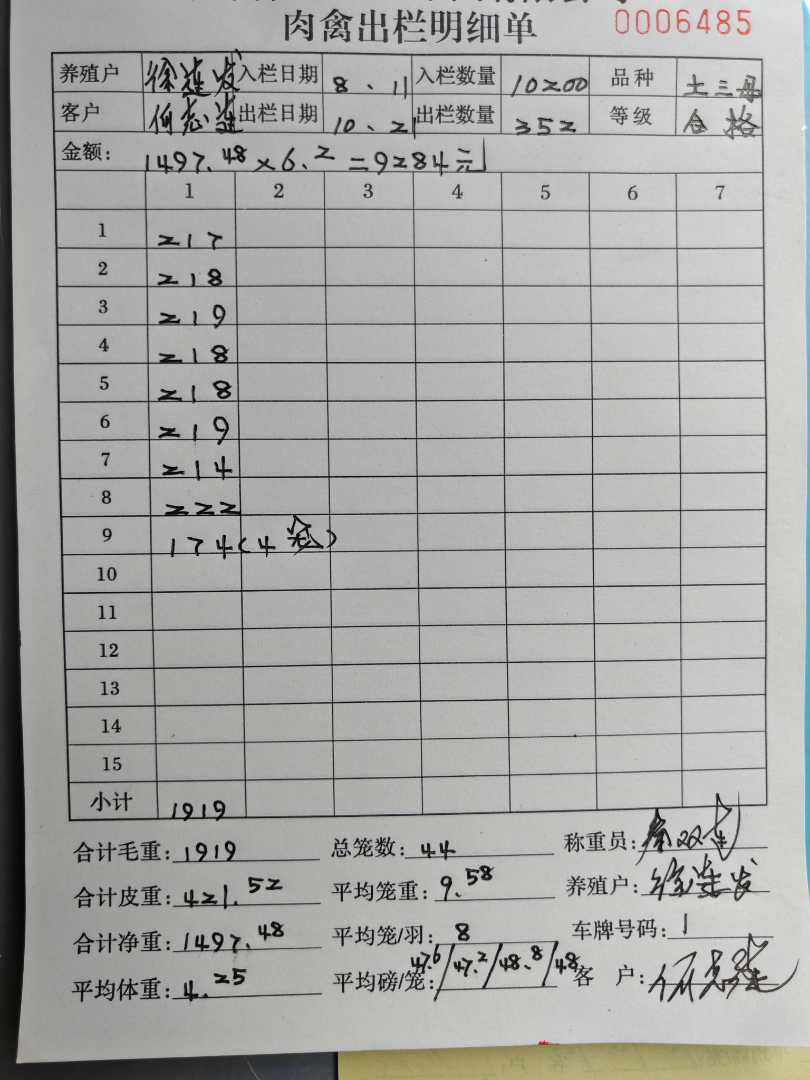 肉禽出栏明细单 0006485
养殖户 徐莲发 入栏日期 8、11 入栏数量 10200 品种 土三母
客户 何志莲 出栏日期 10、21 出栏数量 352 等级 合格
金额: 1497.48×6.2=9284元
1 2 3 4 5 6 7
1 217
2 218
3 219
4 218
5 218
6 219
7 214
8 222
9 174(4笼)
10
11
12
13
14
15
小计 1919
合计毛重: 1919 总笼数: 44 称重员:
合计皮重: 421.52 平均笼重: 9.58 养殖户: 徐莲发
合计净重: 1497.48 平均笼/羽: 8 车牌号码: 1
平均体重: 4.25 平均磅/笼: 47.6/47.2/48.8/48 客 户: 何志莲